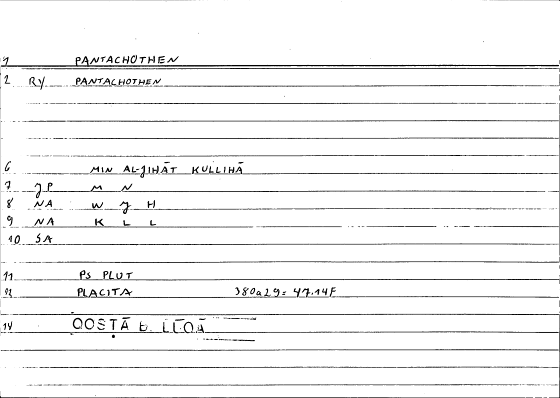 1 PANTACHOTHEN
2 RY PANTACHOTHEN
6 MIN AL-JIHĀT KULLIHĀ
7 JP M N
8 NA W J H
9 NA K L L
10 SA
11 PS PLUT
12 PLACITA 380a29= 47.14F
14 QOSṬĀ B. LŪQĀ